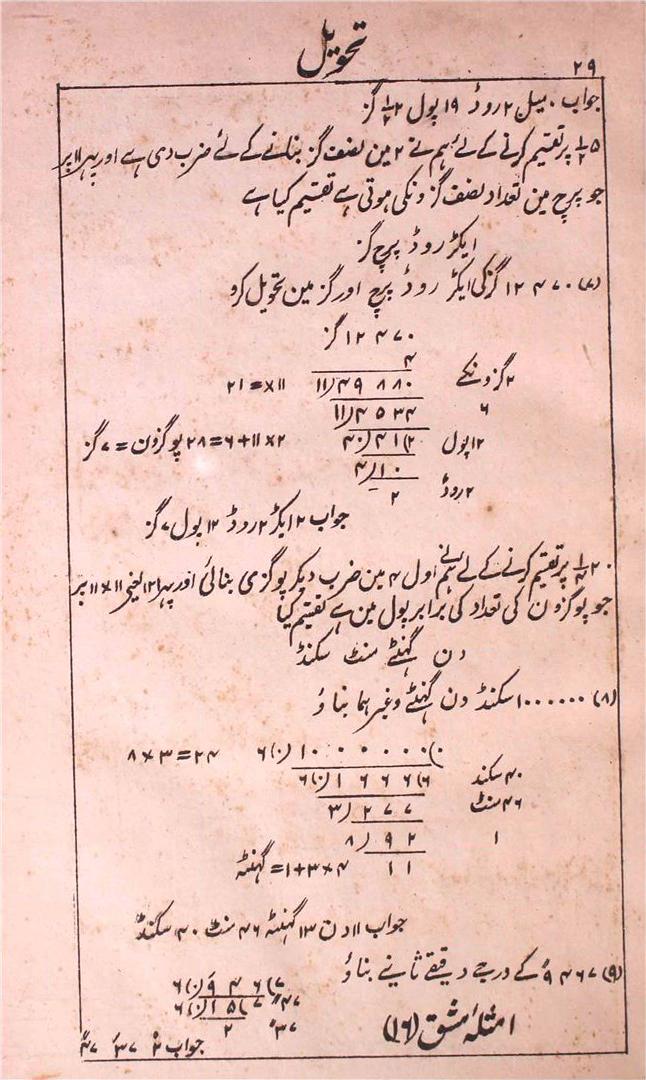 ۲۹
تحویل
جواب ۰ میل ۲ روڈ ۱۹ پول ۲ ۱/۲ گز
۵ ۱/۲ پر تقسیم کرنے کے لئے ہم نے ۲ مین نصف گز بنانے کے لئے ضرب دی ہے اور پہر ۱۱ پر
جو پرچ مین تعداد نصف گزونکی ہوتی ہے تقسیم کیا ہے
ایکڑ روڈ پرچ گز
(۷) ۱۲۴۷۰ گز کی ایکڑ روڈ پرچ اور گز مین تحویل کرو
۱۲۴۷۰ گز
۴
۲ گزونکے ۱۱) ۴۹۸۸۰ ۱۱× = ۲۱
۶ ۱۱) ۴۵۳۴
۱۲ پول ۴۰) ۴۱(۲ ۲×۱۱+۶ = ۲۸ پوگزون = ۷ گز
۲ روڈ ۴) ۱۰
۲
جواب ۲ ایکڑ ۲ روڈ ۱۲ پول ۷ گز
۳۰ ۱/۴ پر تقسیم کرنے کے لئے ہمنے اول ۴ مین ضرب دیکر پوگزی بنائی اور پہر ۱۲۱ یعنی ۱۱×۱۱ پر
جو پوگزون کی تعداد کی برابر پول مین ہے تقسیم کیا
دن گہنٹے منٹ سکنڈ
(۸) ۱۰۰۰۰۰۰ سکنڈ دن گہنٹے وغیرہما بناؤ
۶(۰) ۱۰۰۰۰۰(۰ ۸×۳=۲۴
۴۰ سکنڈ ۶(۰) ۱۶۶۶(۶
۴۶ منٹ ۳) ۲۷۷
۱ ۸) ۹۲
۱۱ ۴×۳+۱= گہنٹہ
جواب ۱۱ دن ۱۳ گہنٹہ ۴۶ منٹ ۴۰ سکنڈ
(۹) ۹۴۶۷ ًکے درجے دقیقے ثانیے بناؤ
۶(۰) ۹۴۶(۷
۴۷ ً ۶(۰) ۱۵(۷
۳۷ َ ۲
امثلۂ مشق (۱۶)
جواب ۲ ۳۷ َ ۴۷ ً